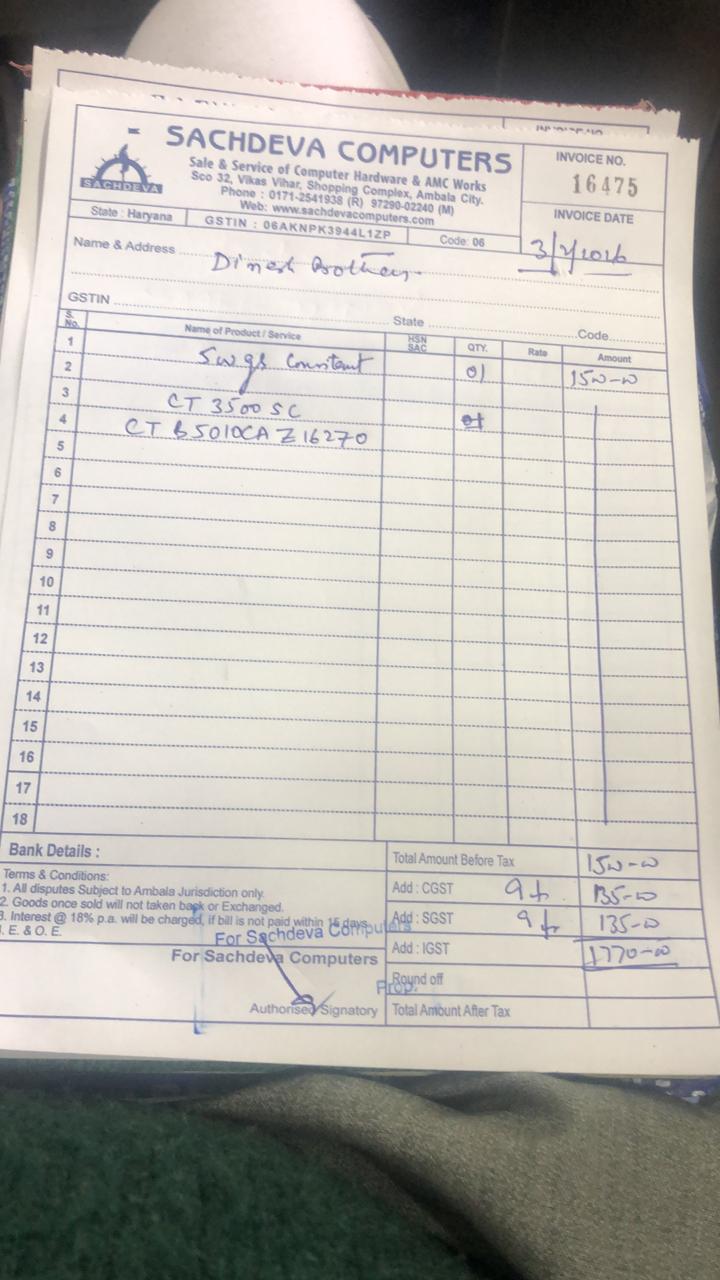 SACHDEVA COMPUTERS
Sale & Service of Computer Hardware & AMC Works
Sco 32, Vikas Vihar, Shopping Complex, Ambala City.
Phone : 0171-2541938 (R) 97290-02240 (M)
Web: www.sachdevacomputers.com
SACHDEVA
INVOICE NO.
16475
INVOICE DATE
State : Haryana
GSTIN : 06AKNPK3944L1ZP
Code: 06
Name & Address
Dinesh Brothers
GSTIN
State
Code
S. No.
Name of Product / Service
HSN SAC
QTY.
Rate
Amount
1
2 01 1500-00
3 CT 3500 SC
4 CT B5010CAZ16270
5
6
7
8
9
10
11
12
13
14
15
16
17
18
Bank Details :
Terms & Conditions:
1. All disputes Subject to Ambala Jurisdiction only.
2. Goods once sold will not taken back or Exchanged.
3. Interest @ 18% p.a. will be charged, if bill is not paid within 15 days.
. E. & O. E.
For Sachdeva Computers
For Sachdeva Computers
Prop.
Authorised Signatory
Total Amount Before Tax 1500-00
Add : CGST 9% 135-00
Add : SGST 9% 135-00
Add : IGST 1770-00
Round off
Total Amount After Tax